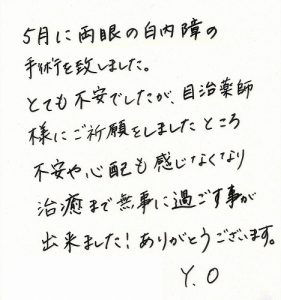 5月に両眼の白内障の
手術を致しました。
とても不安でしたが、目治薬師
様にご祈願をしましたところ
不安や心配も感じなくなり
治癒まで無事に過ごす事が
出来ました！ありがとうございます。
Y.O